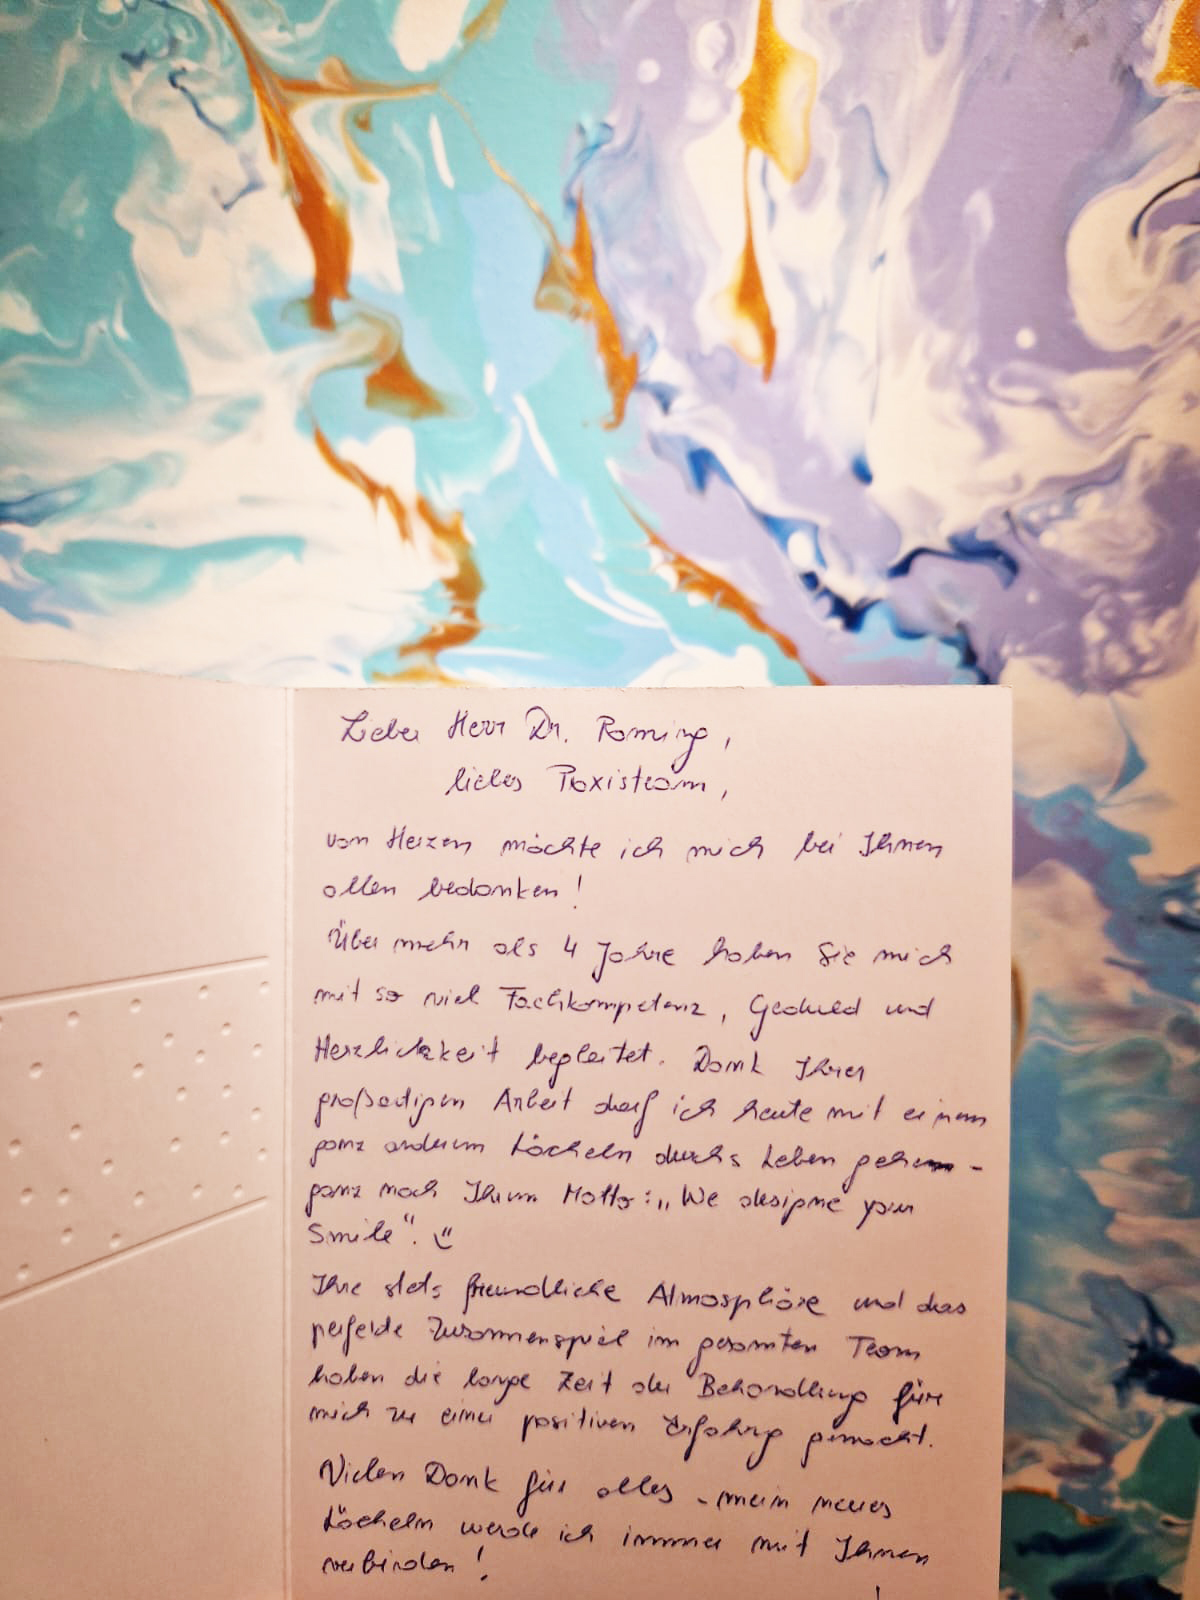 Lieber Herr Dr. Roming,
liebes Praxisteam,
von Herzen möchte ich mich bei Ihnen
allen bedanken!
Über mehr als 4 Jahre haben Sie mich
mit so viel Fachkompetenz, Geduld und
Herzlichkeit begleitet. Dank Ihrer
großartigen Arbeit darf ich heute mit einem
ganz anderen Lächeln durchs Leben gehen -
ganz nach Ihrem Motto: „We designe your
Smile“. ツ
Ihre stets freundliche Atmosphäre und das
perfekte Zusammenspiel im gesamten Team
haben die lange Zeit der Behandlung für
mich zu einer positiven Erfahrung gemacht.
Vielen Dank für alles - mein neues
Lächeln werde ich immer mit Ihnen
verbinden!